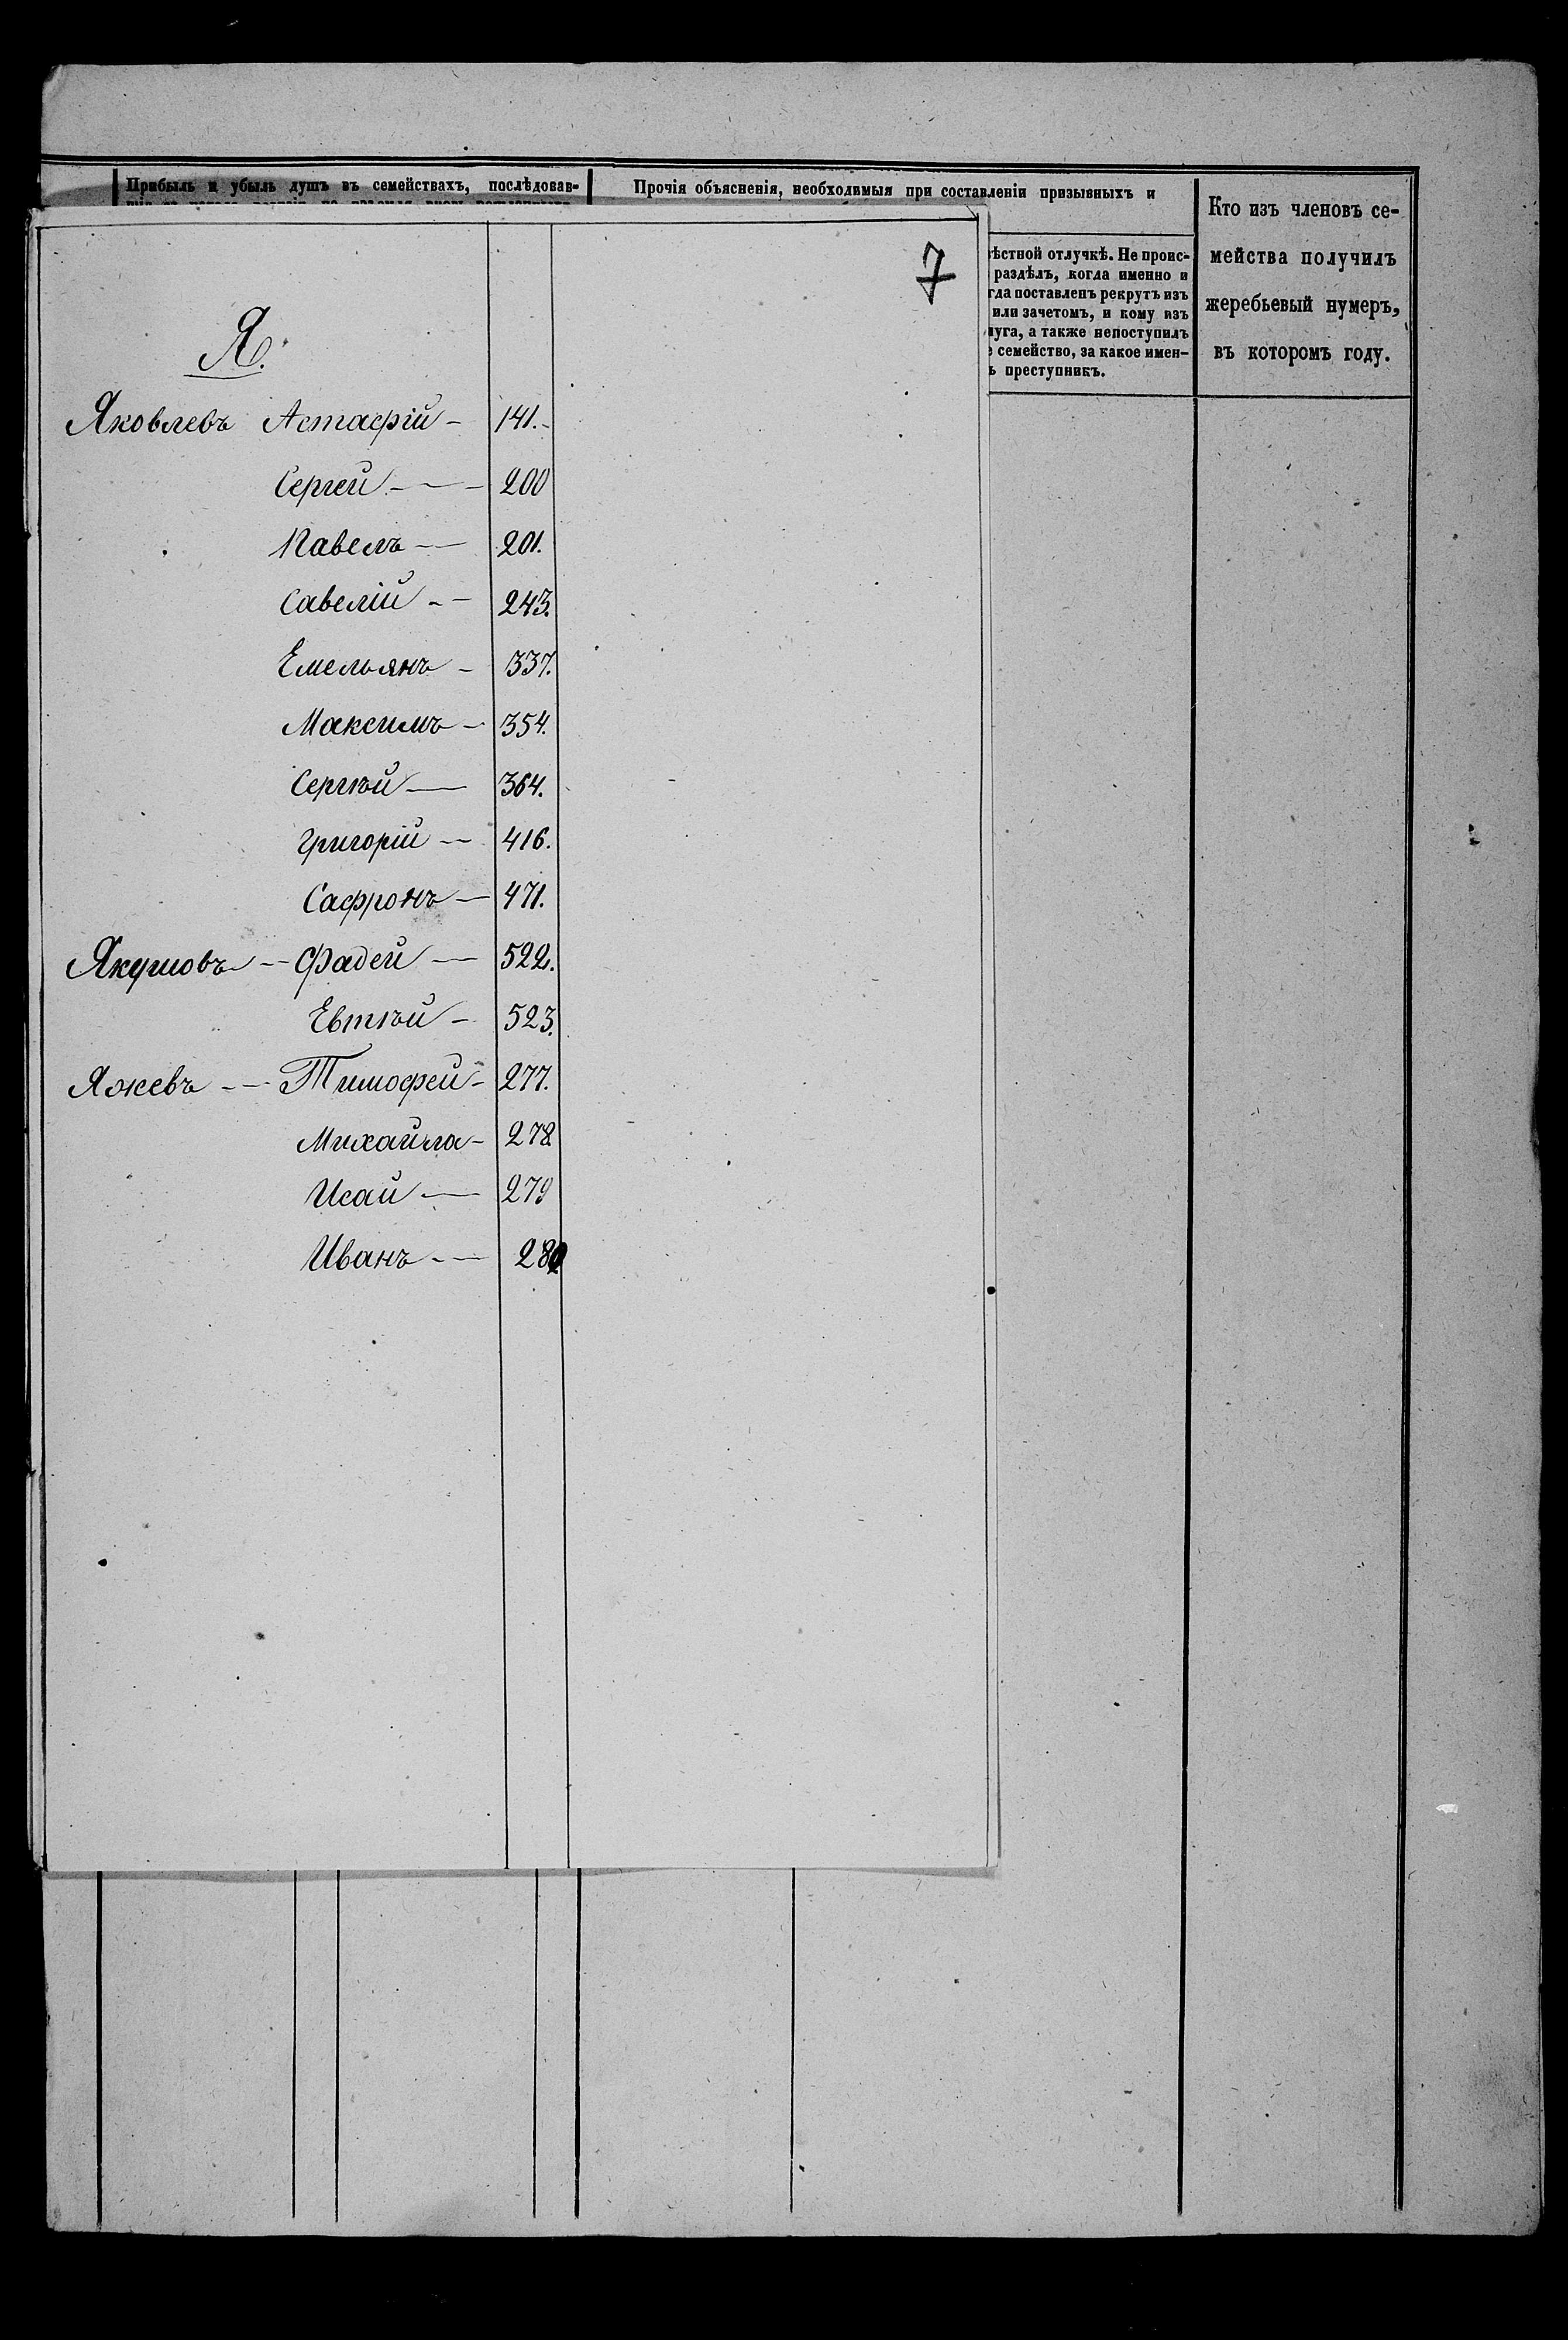 Прибыль и убыль душъ въ семействахъ, послѣдовав-
Прочія объясненія, необходимыя при составленіи призывныхъ и
Кто изъ членовъ се-
мейства получилъ
жеребьевый нумеръ,
въ которомъ году.
ѣстной отлучкѣ. Не проис-
раздѣлъ, когда именно и
гда поставленъ рекрутъ изъ
или зачетомъ, и кому изъ
луга, а также непоступилъ
е семейство, за какое имен-
ъ преступникъ.
7
Я.
Яковлевъ Астафій - 141.-
Сергей - - - 200
Павелъ - - 201.
Савелій - - 243.
Емельянъ - 337.
Максимъ - 354.
Сергѣй - 364.
Григорій - 416.
Сафронъ - 471.
Якушовъ - Фадей - 522.
Евтѣй - 523.
Яжевъ - - Тимофей - 277.
Михайла - 278
Исай - 279
Иванъ - - 280